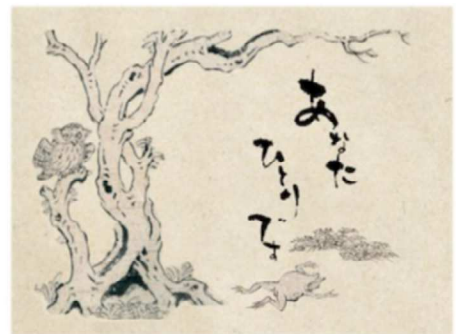 あなた
ひとり
です